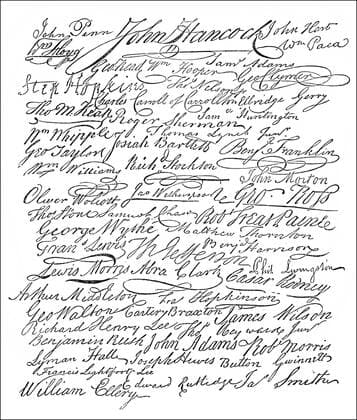 John Penn John Hancock John Hart
Wm Floyd Wm Paca
Geo Read Wm Hooper Saml Adams
Step Hopkins Geo Clymer
Thos Nelson jr
Charles Carroll of Carrollton Elbridge Gerry
Tho M: Kean Roger Sherman Sam Huntington
Wm Whipple Thomas Lynch Junr
Geo Taylor Josiah Bartlett Benj Franklin
Wm Williams Richd Stockton
John Morton
Oliver Wolcott Jno Witherspoon Geo. Ross
Thos Stone Samuel Chase Robt Treat Paine
George Wythe Matthew Thornton
Fran. Lewis Th Jefferson Benj Harrison
Lewis Morris Abra Clark Phil. Livingston
Casar Rodney
Arthur Middleton Fras Hopkinson
Geo Walton Carter Braxton James Wilson
Richard Henry Lee Thos Heyward Junr
Benjamin Rush John Adams Robt Morris
Lyman Hall Joseph Hewes Button Gwinnett
Francis Lightfoot Lee
William Ellery Edward Rutledge Jas Smith